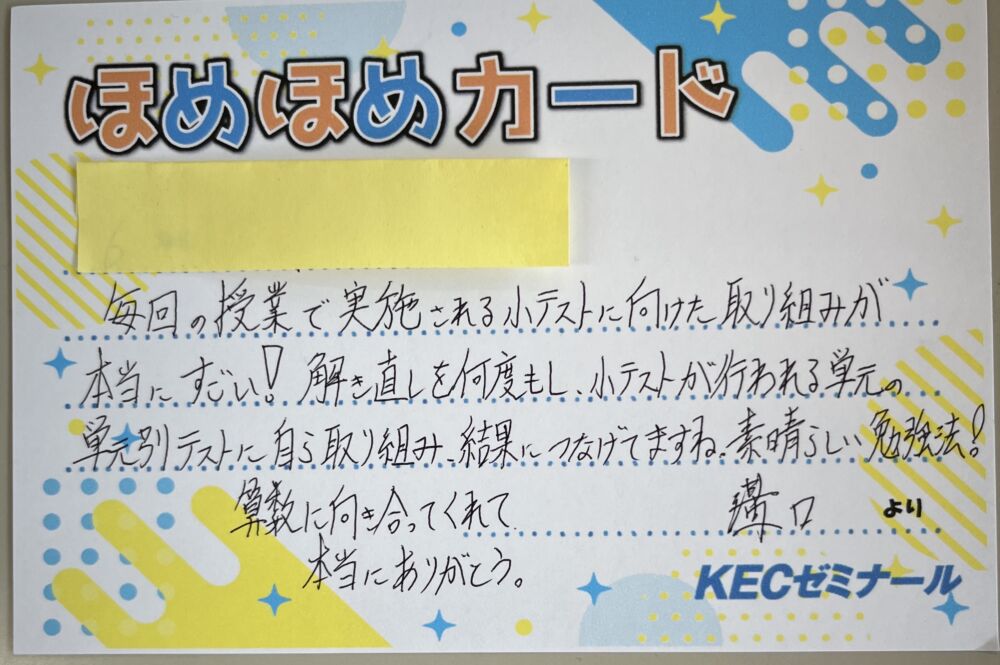 ほめほめカード
毎回の授業で実施される小テストに向けた取り組みが
本当にすごい！解き直しを何度もし、小テストが行われる単元の
単元別テストに自ら取り組み、結果につなげてますね。素晴らしい勉強法！
算数に向き合ってくれて
本当にありがとう。
溝口 より
KECゼミナール